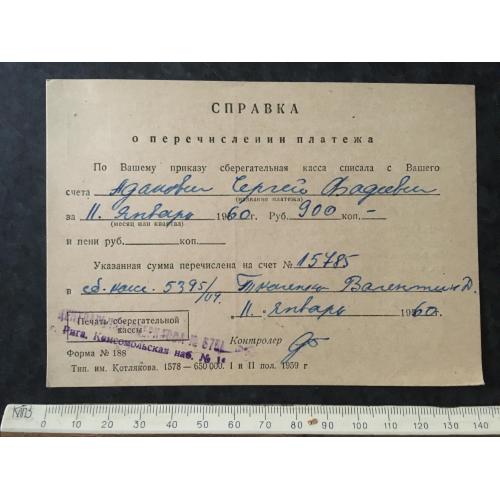 СПРАВКА
о перечислении платежа
По Вашему приказу сберегательная касса списала с Вашего
счета Жданович Сергей Фадеевич
(название платежа)
за 11. Январь 1960г. Руб. 900 коп. -
(месяц или квартал)
и пени руб. коп.
Указанная сумма перечислена на счет № 15785
в сб. касс. 5395/09. Ткаченко Валентин Д.
11. январь 1960г.
Печать сберегательной
кассы
г. Рига, Комсомольская наб. №
Контролер
Форма № 188
Тип. им. Котлякова. 1578 — 650 000. I и II пол. 1959 г
0 10 20 30 40 50 60 70 80 90 100 110 120 130 140